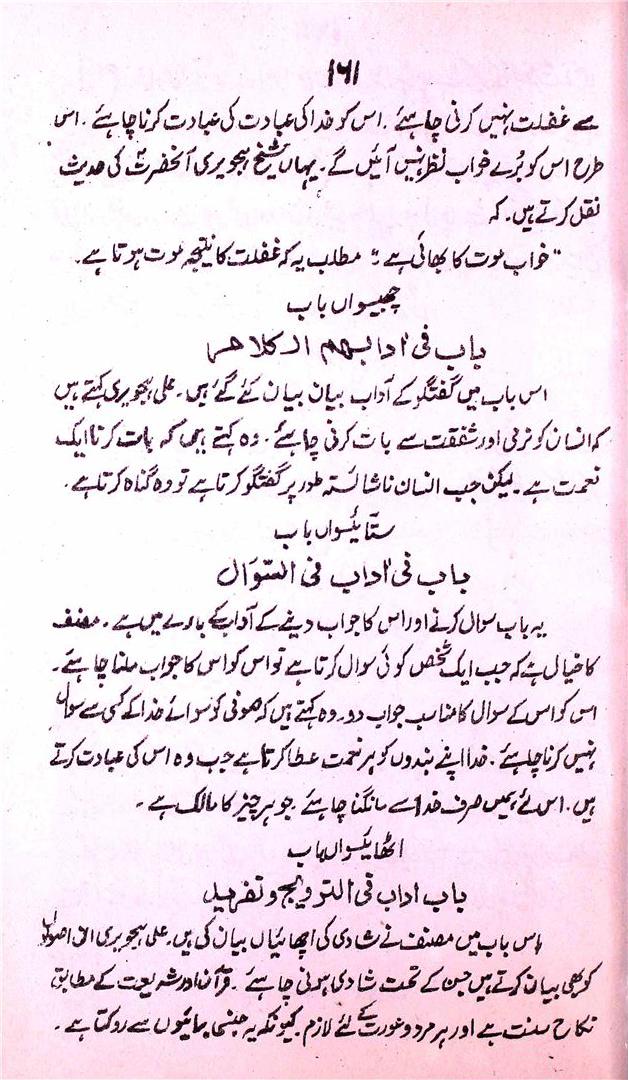 ۱۶۱
سے غفلت نہیں کرنی چاہئے ۔ اس کو خدا کی عبادت کی عبادت کرنا چاہئے ۔ اس
طرح اس کو بُرے خواب نظر نہیں آئیں گے ۔ یہاں شیخ ہجویری آنحضرتؐ کی حدیث
نقل کرتے ہیں ۔ کہ
"خواب موت کا بھائی ہے" مطلب یہ کہ غفلت کا نتیجہ موت ہوتا ہے ۔
چھبیسواں باب
باب فی ادابہم الکلام
اس باب میں گفتگو کے آداب بیان بیان کئے گئے ہیں ۔ علی ہجویری کہتے ہیں
کہ انسان کو نرمی اور شفقت سے بات کرنی چاہئے ۔ وہ کہتے ہیں کہ بات کرنا ایک
نعمت ہے ۔ لیکن جب انسان ناشائستہ طور پر گفتگو کرتا ہے تو وہ گناہ کرتا ہے ۔
ستائیسواں باب
باب فی اداب فی السّوَال
یہ باب سوال کرنے اور اس کا جواب دینے کے آداب کے بارے میں ہے ۔ مصنف
کا خیال ہے کہ جب ایک شخص کوئی سوال کرتا ہے تو اس کو اس کا جواب ملنا چاہئے ۔
اس کو اس کے سوال کا مناسب جواب دو ۔ وہ کہتے ہیں کہ صوفی کو سوائے خدا کے کسی سے سوال
نہیں کرنا چاہئے ۔ خدا اپنے بندوں کو ہر نعمت عطا کرتا ہے جب وہ اس کی عبادت کرتے
ہیں ۔ اس لئے ہمیں صرف خدا سے مانگنا چاہئے ۔ جو ہر چیز کا مالک ہے ۔
اٹھائیسواں باب
باب اداب فی التزویج و تفرید
اس باب میں مصنف نے شادی کی اچھائیاں بیان کی ہیں ۔ علی ہجویری ان اصولوں
کو بھی بیان کرتے ہیں جن کے تحت شادی ہونی چاہئے ۔ قرآن اور شریعت کے مطابق
نکاح سنت ہے اور ہر مرد و عورت کے لئے لازم ۔ کیونکہ یہ جنسی برائیوں سے روکتا ہے ۔